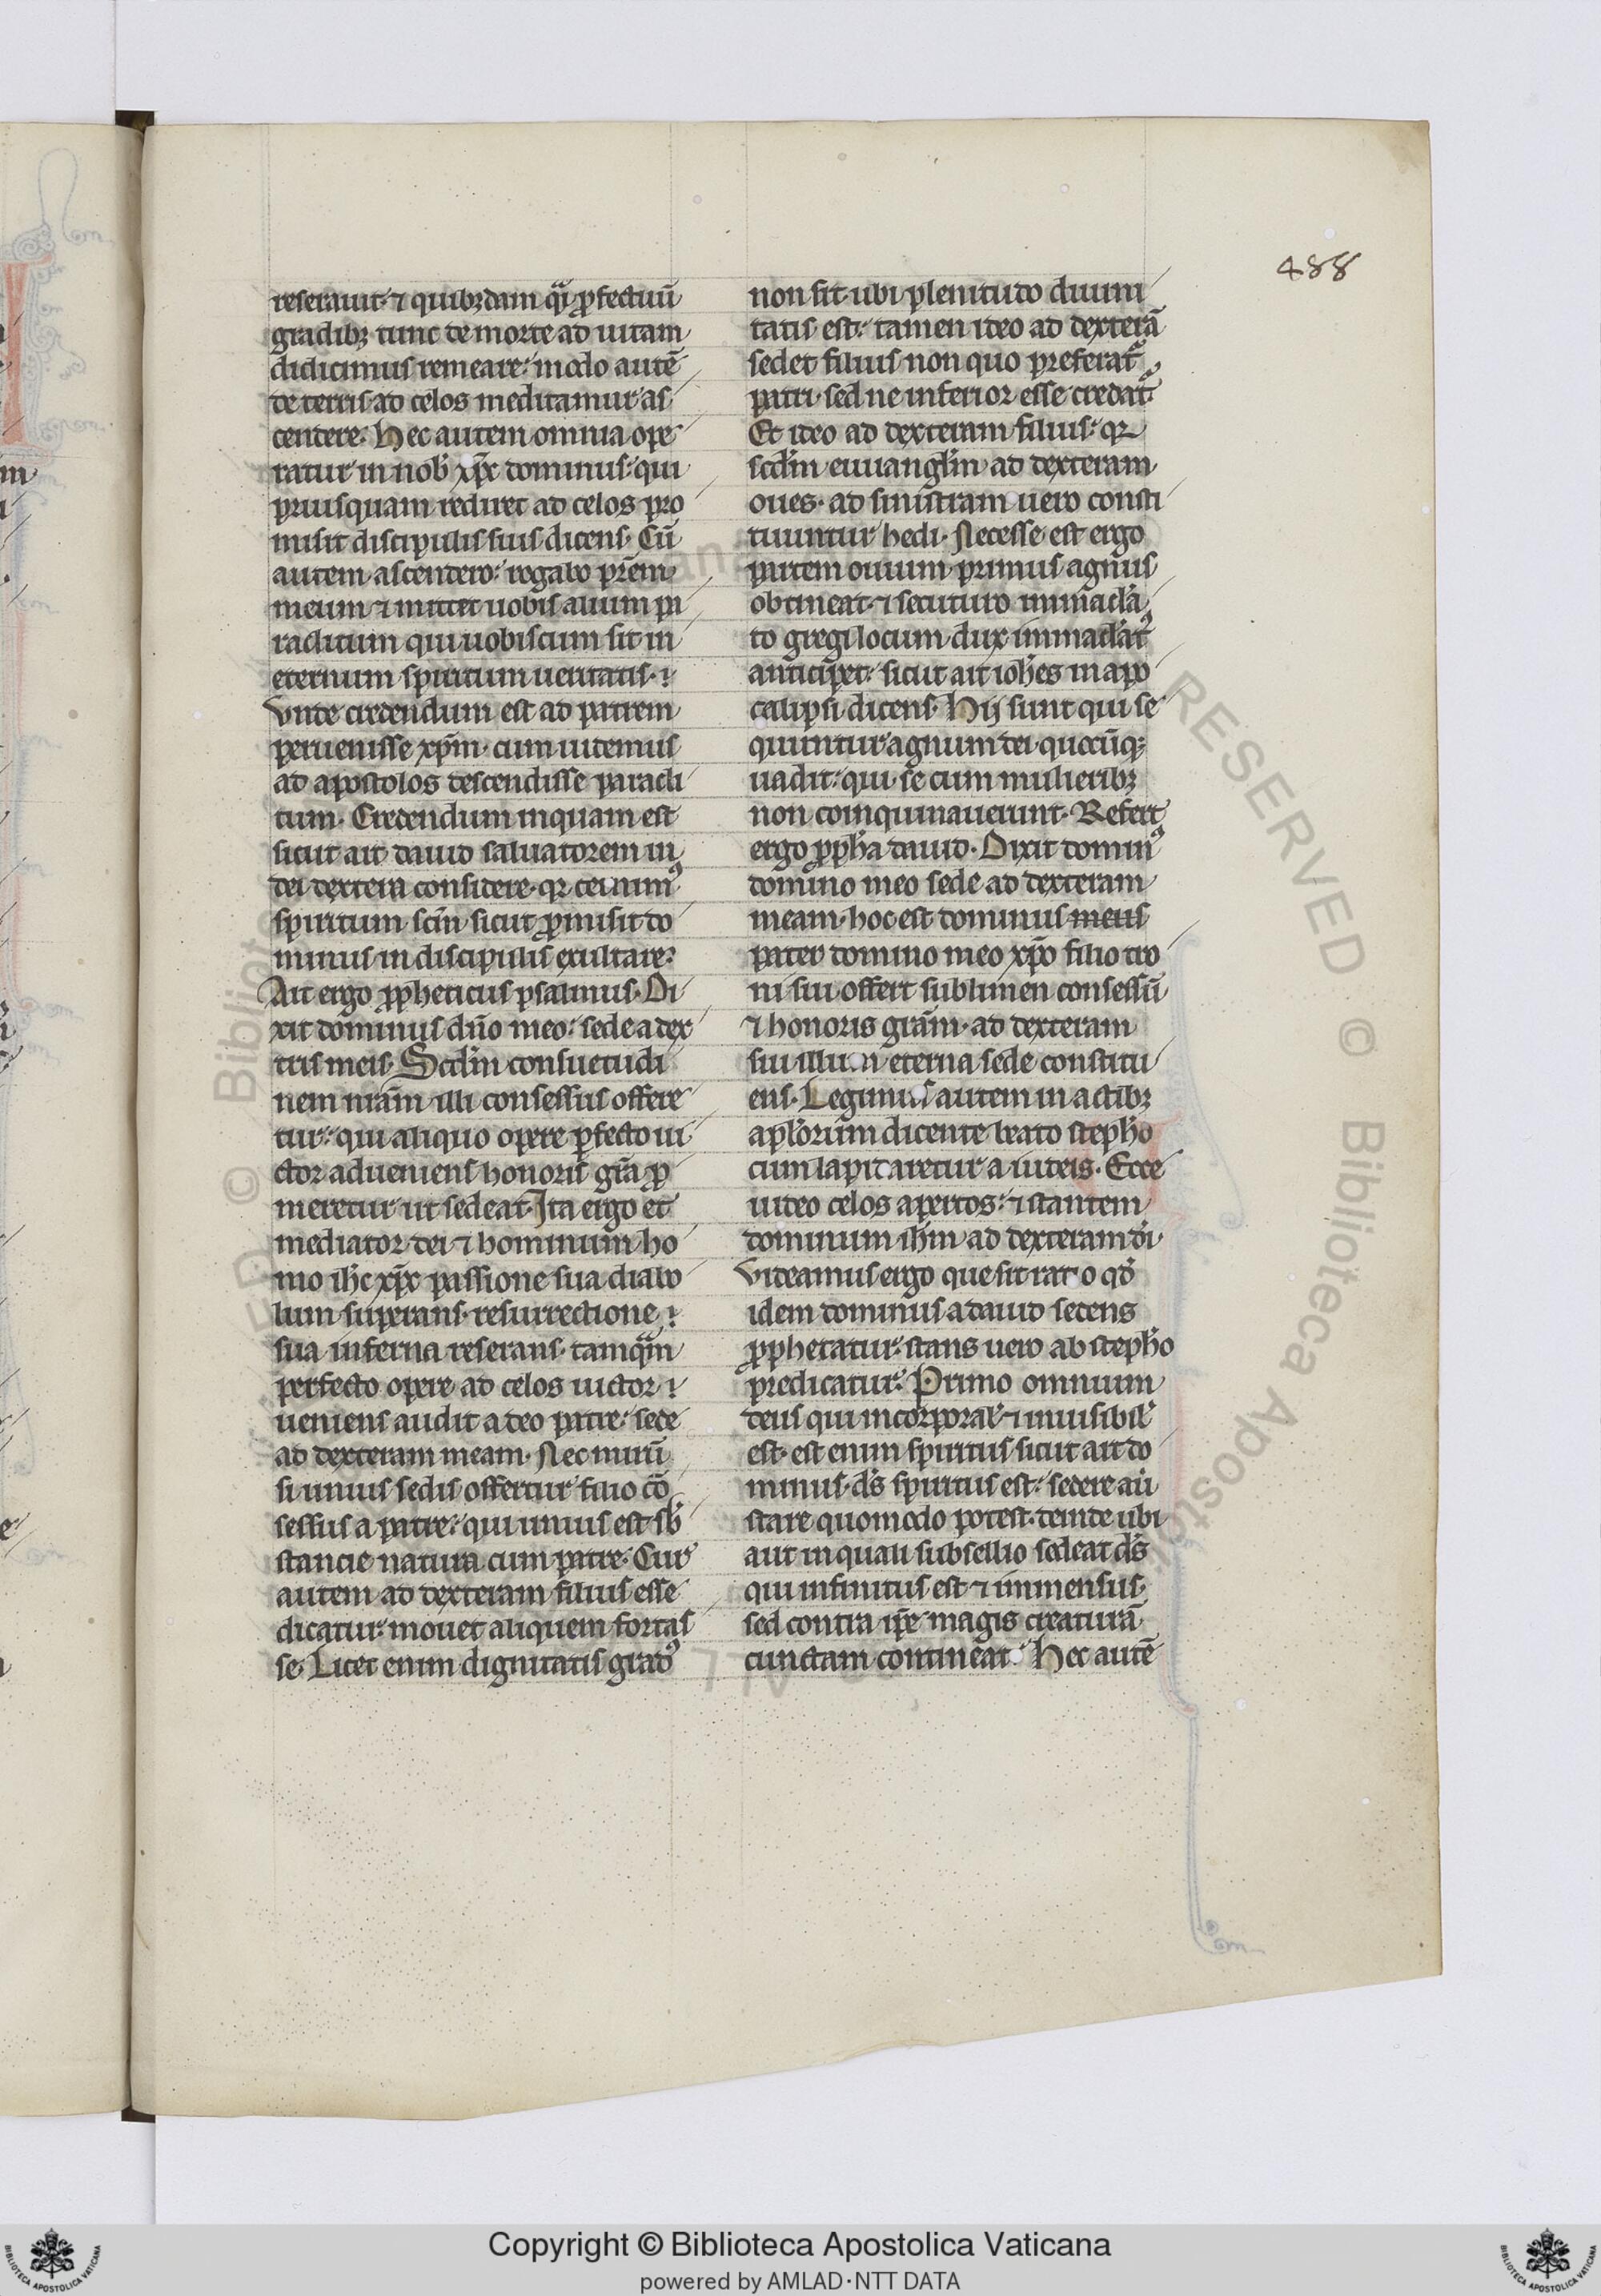 488
reserauit· ⁊ quibꝫdam qͣi ꝓfectuū
gradibꝫ tunc de morte ad uitam
didicimus remeare: modo autē
de terris ad celos meditamur as
cendere. Hec autem omnia ope
ratur in nob̄ xp̄c dominus: qui
priusquam rediret ad celos pro
misit discipulis suis dicens. Cū
autem ascendero: rogabo pr̄em
meum ⁊ mittet uobis alium pa
raclitum qui uobiscum sit in
eternum spiritum ueritatis.
Vnde credendum est ad patrem
peruenisse xp̄m· cum uidemus
ad apostolos descendisse paracli
tum. Credendum inquam est
sicut ait dauid saluatorem in
dei dextera considere· qꝛ cernimꝰ
spiritum scm̄ sicut ꝓmisit do
minus in discipulis exultare:
Ait ergo ꝓpheticus psalmus. Di
xit dominus dn̄o meo: sede a dex
tris meis. Scd̄m consuetudi
nem nr̄am illi consessus offere
tur: qui aliquo opere ꝑfecto ui
ctor adueniens honoris gr̄a ꝓ
meretur ut sedeat. Ita ergo et
mediator dei ⁊ hominum ho
mo ih̄c xp̄c passione sua diabo
lum superans· resurrectione
sua inferna reserans· tamqͣm
perfecto opere ad celos uictor
ueniens audit a deo patre: sede
ad dexteram meam. Nec mirū
si unius sedis offertur filio cō
sessus a patre: qui unius est sb̄
stancie natura cum patre. Cur
autem ad dexteram filius esse
dicatur: mouet aliquem fortas
se. Licet enim dignitatis gradꝰ
non sit· ubi plenitudo diuini
tatis est: tamen ideo ad dexterā
sedet filius non quo preferatᷣ
patri· sed ne inferior esse credatᷣ
Et ideo ad dexteram filius: qꝛ
scd̄m euuangl̄m ad dexteram
oues· ad sinistram uero consti
tuuntur hedi. Necesse est ergo
partem ouium primus agnus
obtineat· ⁊ secuturo immacla
to gregi locum dux immaclatꝰ
anticipet: sicut ait ioh̄es in apo
calipsi dicens. Hij sunt qui se
quuntur agnum dei· quocūqꝫ
uadit: qui se cum mulieribꝫ
non coinquinauerunt. Refert
ergo ꝓph̄a dauid. Dixit dominꝰ
domino meo sede ad dexteram
meam· hoc est dominus meus
pater domino meo xp̄o filio tro
ni sui offert sublimen consessū
⁊ honoris gr̄am· ad dexteram
sui illum eterna sede constitu
ens. Legimus autem in actibꝫ
apl̄orum dicente beato steph̄o
cum lapidaretur a iudeis. Ecce
uideo celos apertos: ⁊ stantem
dominum ih̄m ad dexteram dī.
Videamus ergo que sit ratio qd̄
idem dominus a dauid sedens
ꝓphetatur: stans uero ab steph̄o
predicatur. Primo omnium
deus qui incorporal̄ ⁊ inuisibil̄
est· est enim spiritus sicut ait do
minus· ds̄ spiritus est: sedere aū
stare quomodo potest· deinde ubi
aut in quali subsellio sedeat ds̄
qui infinitus est ⁊ immensus
sed contra ip̄e magis creaturā
cunctam contineat. Hec autē
Copyright © Biblioteca Apostolica Vaticana
powered by AMLAD·NTT DATA